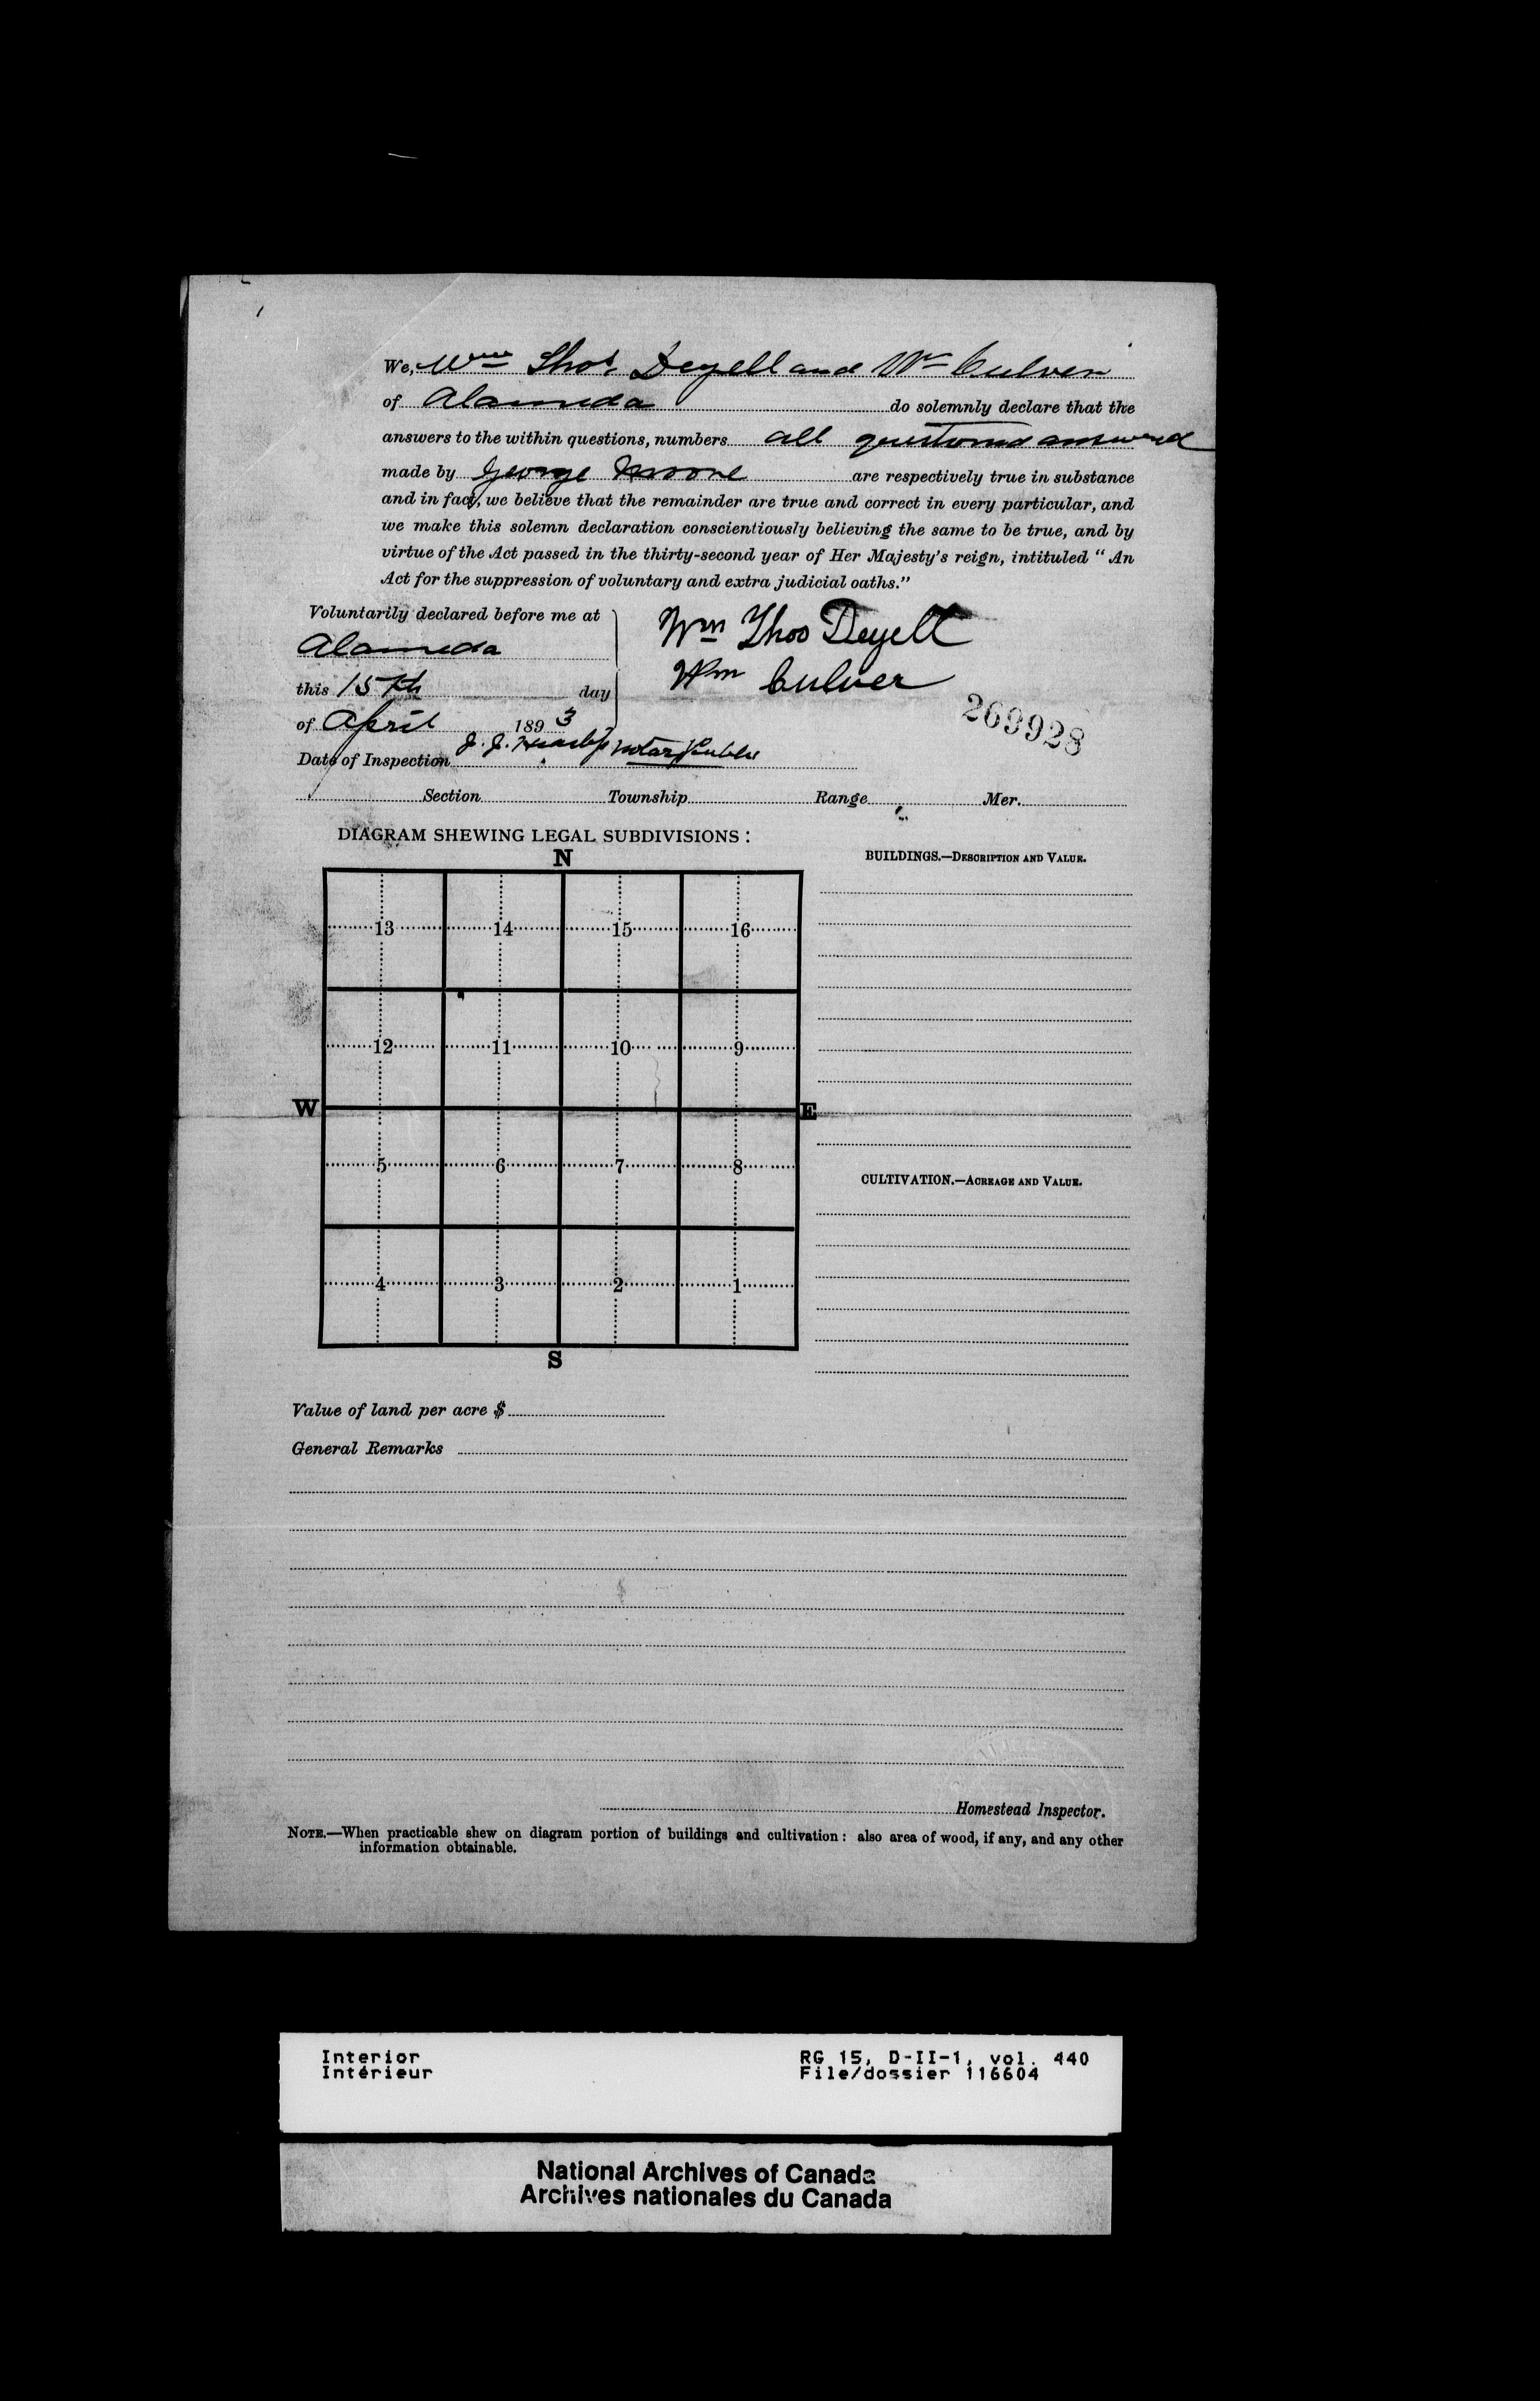 We, Wm Thos. Deyell and Wm Culver
of Alameda do solemnly declare that the
answers to the within questions, numbers all questions answered
made by George Moore are respectively true in substance
and in fact, we believe that the remainder are true and correct in every particular, and
we make this solemn declaration conscientiously believing the same to be true, and by
virtue of the Act passed in the thirty-second year of Her Majesty's reign, intituled “ An
Act for the suppression of voluntary and extra judicial oaths.”
Voluntarily declared before me at
Alameda
this 15th day
of April 1893
Wm Thos Deyell
Wm Culver
269928
J. J. Notary Public
Date of Inspection
Section Township Range Mer.
DIAGRAM SHEWING LEGAL SUBDIVISIONS :
N
13 14 15 16
12 11 10 9
W E
5 6 7 8
4 3 2 1
S
BUILDINGS.—DESCRIPTION AND VALUE.
CULTIVATION.—ACREAGE AND VALUE.
Value of land per acre $
General Remarks
Homestead Inspector.
NOTE.—When practicable shew on diagram portion of buildings and cultivation : also area of wood, if any, and any other
information obtainable.
Interior RG 15, D-II-1, vol. 440
Intérieur File/dossier 116604
National Archives of Canada
Archives nationales du Canada